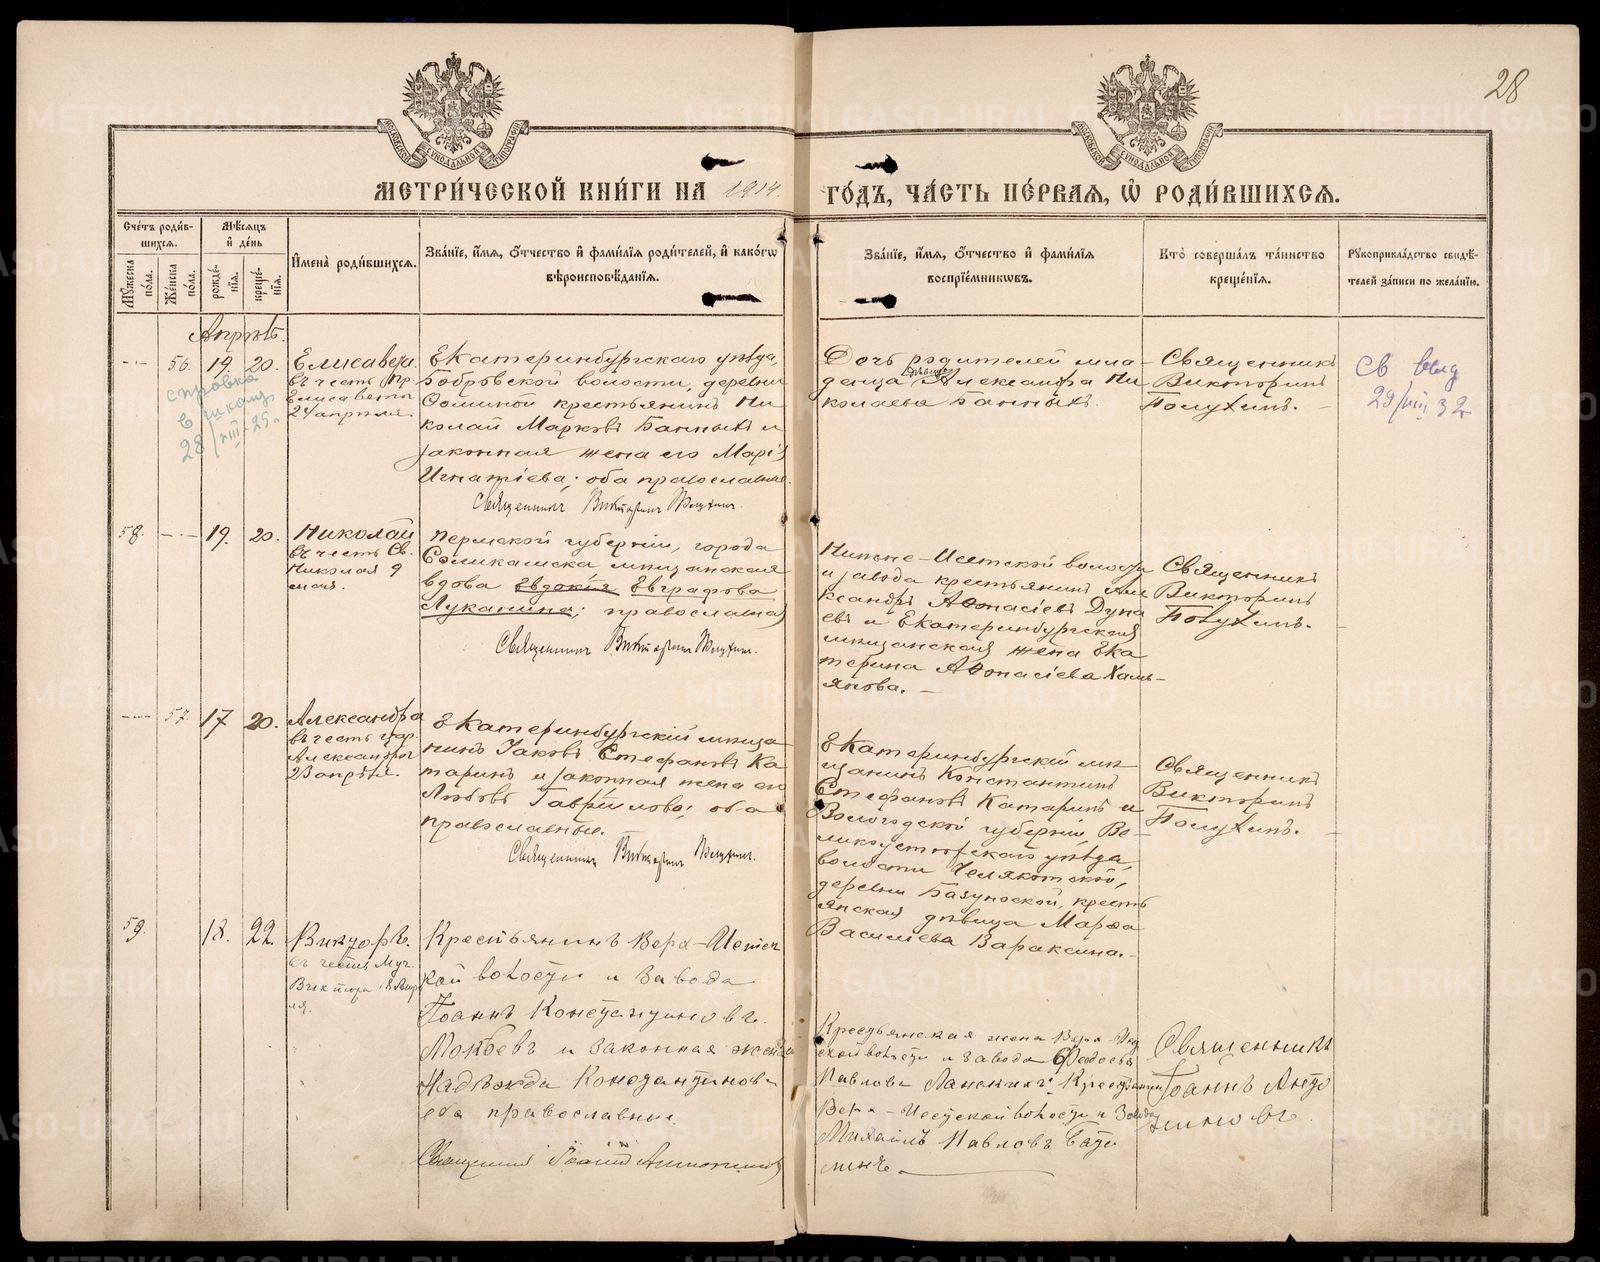 28
МОСКОВСКОЙ СѴНОДАЛЬНОЙ ТИПОГРАФІИ
МОСКОВСКОЙ СѴНОДАЛЬНОЙ ТИПОГРАФІИ
МЕТРИ́ЧЕСКОЙ КНИ́ГИ НА 1914 ГО́ДЪ, ЧА́СТЬ ПЕ́РВАЯ, Ѡ РОДИ́ВШИХСЯ.
Сче́тъ роди́в-
шихся.
Му́жеска по́ла.
Же́нска по́ла.
Мѣ́сяцъ
и де́нь
рожде́нія.
креще́нія.
Имена̀ роди́вшихся.
Зва́ніе, и́мя, ѻ́тчество и фами́лія роди́телей, и како́гѡ
вѣроисповѣ́данія.
Зва́ніе, и́мя, ѻ́тчество и фами́лія
воспріе́мниковъ.
Кто̀ соверша́лъ та́инство
креще́нія.
Рукоприкла́дство свидѣ́-
телей за́писи по жела́нію.
Апрѣль.
56. 19. 20.
Елисавета
въ честь пр
Елисаветы
24 апрѣля.
справка
28/VIII-25
Екатеринбургскаго уѣзда,
Бобровской волости, деревни
Фоминой крестьянинъ Ни
колай Марковъ Банныхъ и
законная жена его Марія
Игнатіева; оба православные.
Священникъ Викторинъ Полухинъ.
Дочь родителей мла-
денца дѣвица Александра Ни
колаева Банныхъ.
Священникъ
Викторинъ
Полухинъ.
Св выд
29/VIII 32
58. 19. 20.
Николай
въ честь Св.
Николая 9
мая.
Пермской губерніи, города
Соликамска мѣщанская
вдова Евдокія Евграфова
Луканина; православная
Священникъ Викторинъ Полухинъ.
Нижне-Исетской волости
и завода крестьянинъ Але
ксандръ Афонасіевъ Дуна
евъ и Екатеринбургская
мѣщанская жена Ека
терина Афонасіева Халь-
янова.
Священникъ
Викторинъ
Полухинъ.
57. 17 20.
Александра
въ честь цар.
Александры
23 апрѣля.
Екатеринбургскій мѣща
нинъ Іаковъ Стефановъ Ка
таринъ и законная жена его
Любовь Гавріилова; оба
православные.
Священникъ Викторинъ Полухинъ.
Екатеринбургскій мѣ-
щанинъ Константинъ
Стефановъ Катаринъ и
Вологодской губерніи, Ве-
ликоустюгскаго уѣзда,
волости
деревни кресть
янская дѣвица Марфа
Василіева Вараксина.
Священникъ
Викторинъ
Полухинъ.
59. 18. 22.
Викторъ.
въ честь муч.
Виктора 18 Апрѣ
ля.
Крестьянинъ Верх-Исетс
кой волости и завода
Іоаннъ Константиновъ
Мокѣевъ и законная жена
Надежда Константинова
оба православные.
Священникъ Іоаннъ Антониновъ
Крестьянская жена Верх-Исе
ской волости и завода Федосья
Павлова Крестьянин
Верх-Исетской волости и Завода
Михаилъ Павловъ
Священникъ
Іоаннъ Анто
ниновъ